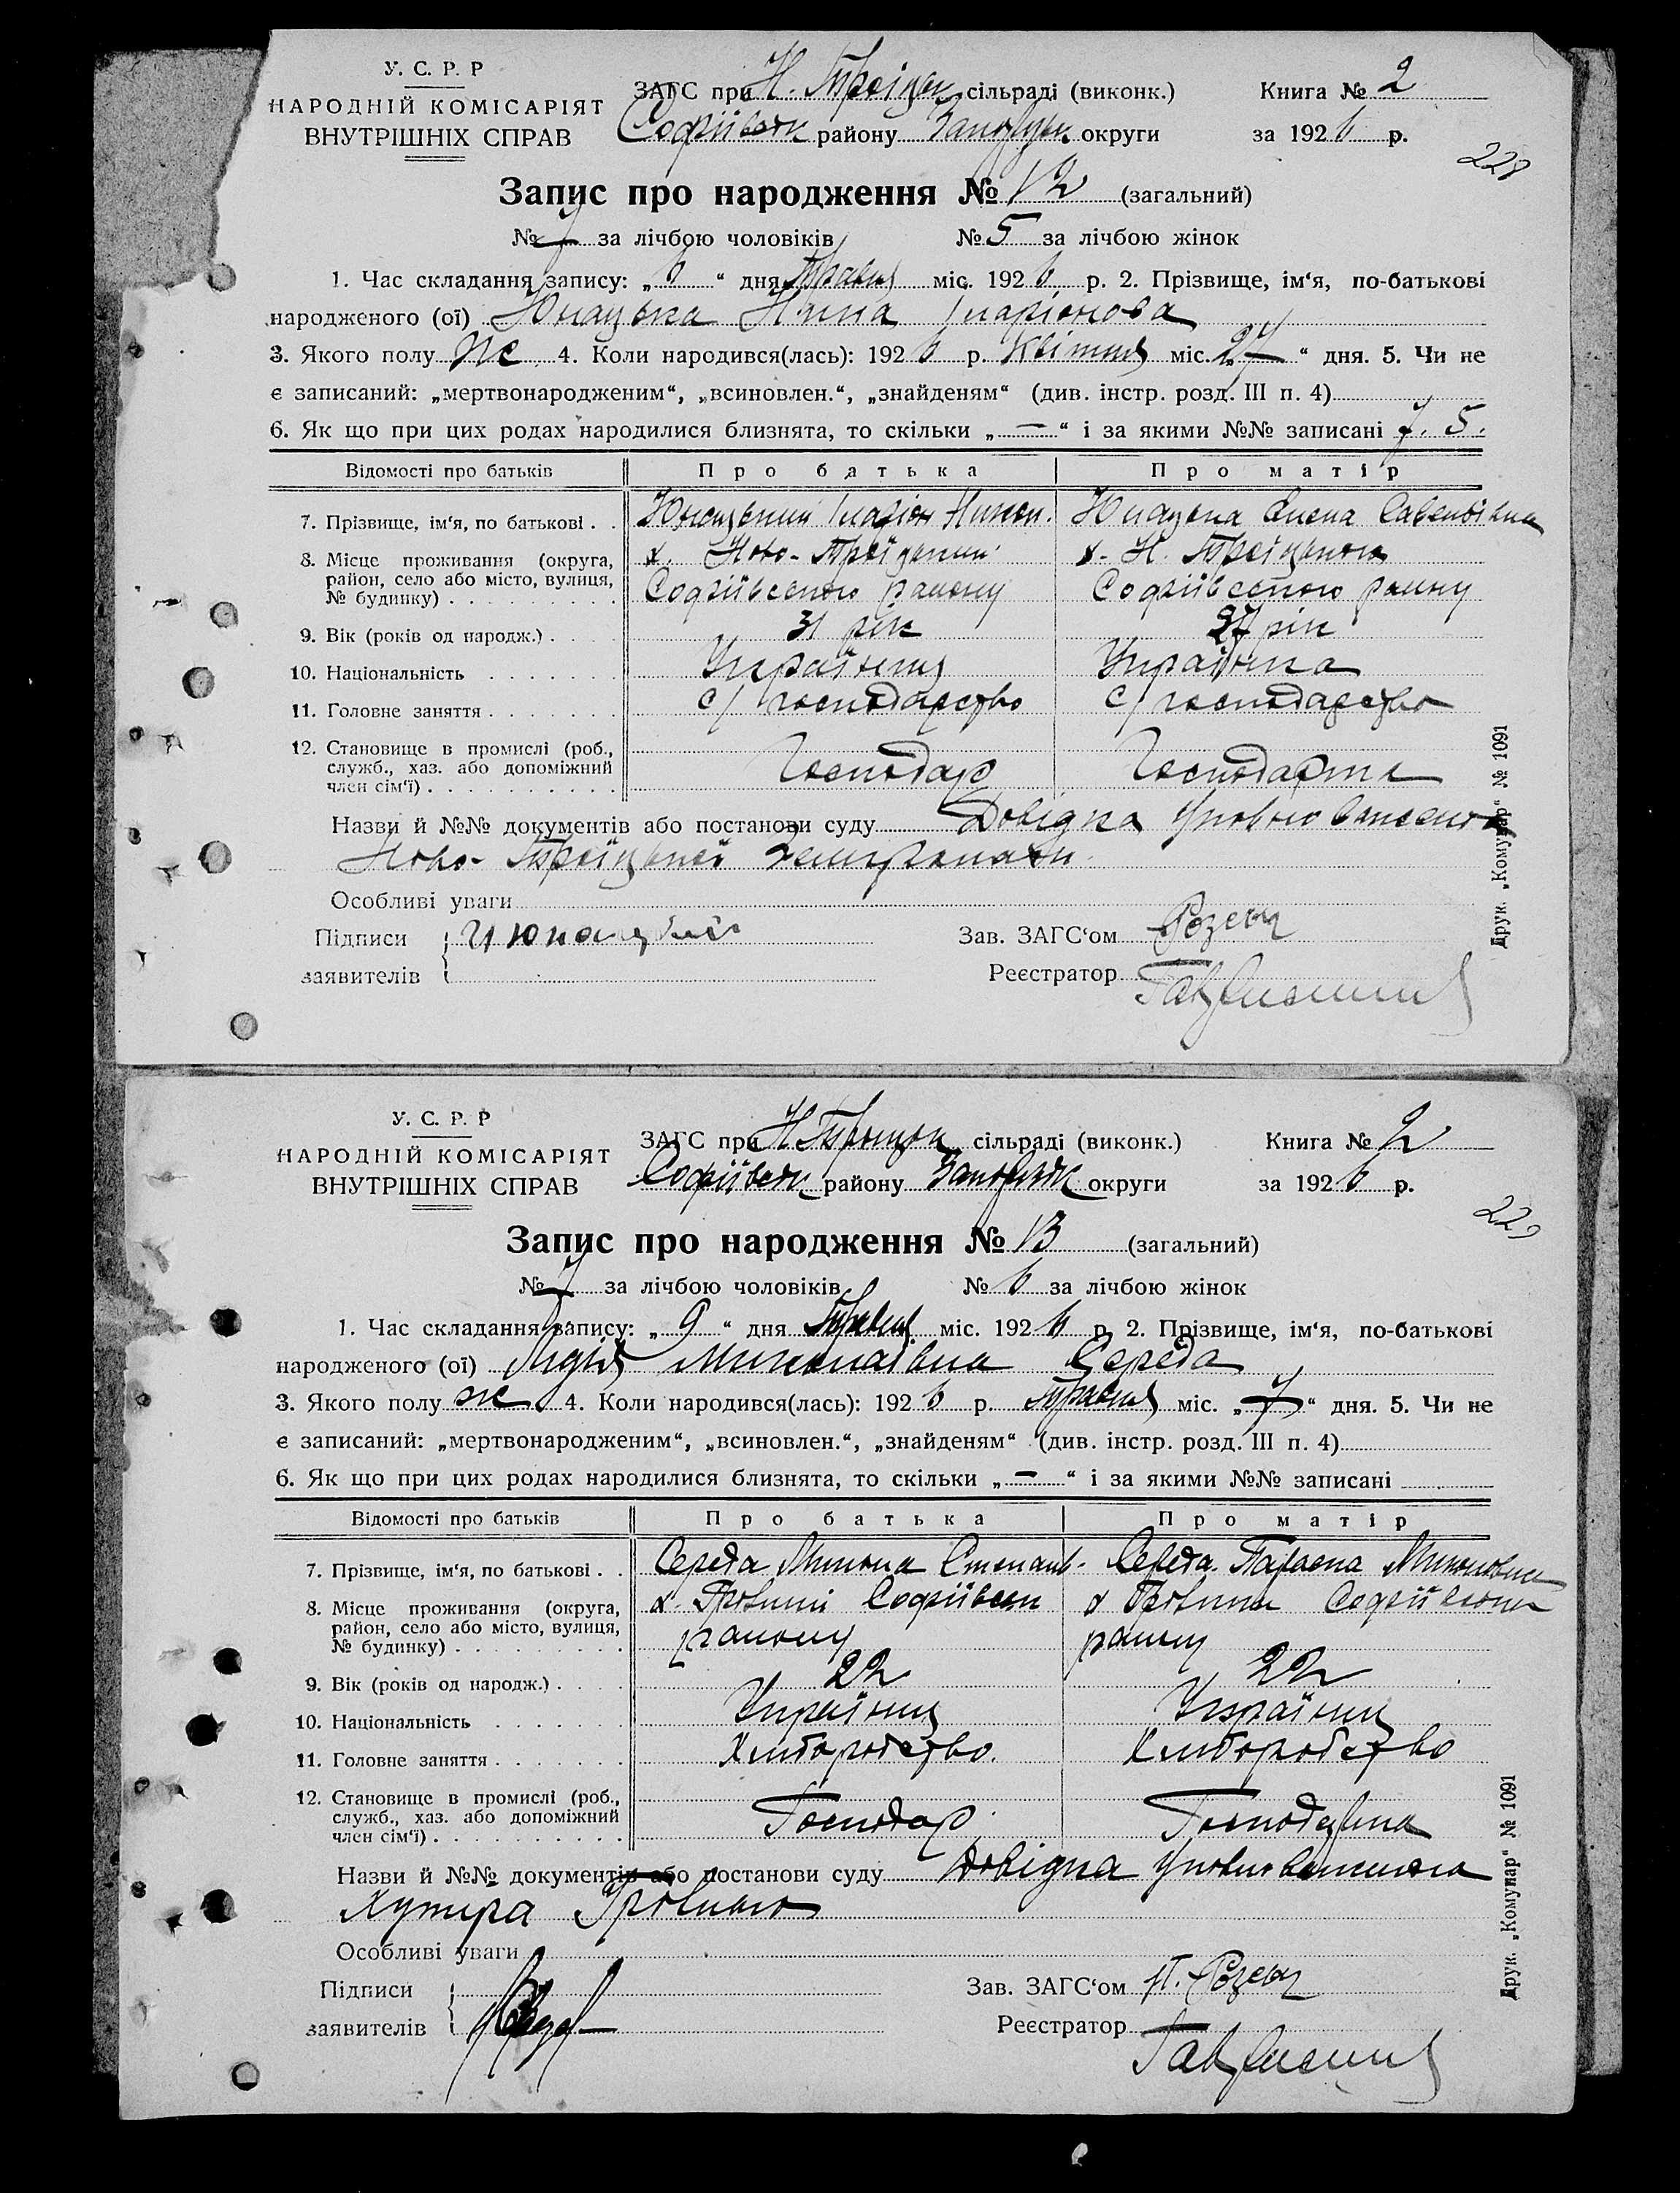 У. С. Р. Р
НАРОДНІЙ КОМІСАРІЯТ
ВНУТРІШНІХ СПРАВ
ЗАГС при Н. Троіцьк сільраді (виконк.) Книга № 2
Софіївськ району Запорізьк округи за 1926 р.
228
Запис про народження № 12 (загальний)
№ 7 за лічбою чоловіків № 5 за лічбою жінок
1. Час складання запису: „ 6 “ дня Травня міс. 1926 р. 2. Прізвище, ім‘я, по-батькові
народженого (ої) Юнацька Нина Іларіонова
3. Якого полу ж 4. Коли народився(лась): 1926 р. Квітня міс. 27 “ дня. 5. Чи не
є записаний: „мертвонародженим“, „всиновлен.“, „знайденям“ (див. інстр. розд. III п. 4)
6. Як що при цих родах народилися близнята, то скільки „ — “ і за якими №№ записані 7. 5.
Відомості про батьків Про батька Про матір
7. Прізвище, ім‘я, по батькові . . Юнацький Іларіон Никон. Юнацька Єлена Савеловівна
8. Місце проживання (округа, район, село або місто, вулиця, № будинку) х. Ново-Троїцький х. Н. Троїцького
Софіївського району Софіївського району
9. Вік (років од народж.) 31 рік 27 рік
10. Національність Українець Українка
11. Головне заняття с/господарство с/господарство
12. Становище в промислі (роб., служб., хаз. або допоміжний член сім‘ї) Господар Господарка
Назви й №№ документів або постанови суду Довідка Уповноваженого
Ново-Троїцької земгромади
Особливі уваги
Підписи заявителів И Юнацький
Зав. ЗАГС‘ом
Реєстратор
Друк. „Комунар“ № 1091
У. С. Р. Р
НАРОДНІЙ КОМІСАРІЯТ
ВНУТРІШНІХ СПРАВ
ЗАГС при Н. Троіцьк сільраді (виконк.) Книга № 2
Софіївськ району Запорізьк округи за 1926 р.
229
Запис про народження № 13 (загальний)
№ 7 за лічбою чоловіків № 6 за лічбою жінок
1. Час складання запису: „ 9 “ дня Травня міс. 1926 р. 2. Прізвище, ім‘я, по-батькові
народженого (ої) Лідія Миколаївна Середа
3. Якого полу ж 4. Коли народився(лась): 1926 р. Травня міс. „ 7 “ дня. 5. Чи не
є записаний: „мертвонародженим“, „всиновлен.“, „знайденям“ (див. інстр. розд. III п. 4)
6. Як що при цих родах народилися близнята, то скільки „ — “ і за якими №№ записані
Відомості про батьків Про батька Про матір
7. Прізвище, ім‘я, по батькові . . Середа Микола Степанів- Середа Параска
8. Місце проживання (округа, район, село або місто, вулиця, № будинку) х. Софіївськ х Софіївського
району району
9. Вік (років од народж.) 22 22
10. Національність Українец Українец
11. Головне заняття Хліборобство. Хліборобство
12. Становище в промислі (роб., служб., хаз. або допоміжний член сім‘ї) Господар Господарка
Назви й №№ документів або постанови суду Довідка Уповноваженого
Хутіра
Особливі уваги
Підписи заявителів
Зав. ЗАГС‘ом
Реєстратор
Друк. „Комунар“ № 1091